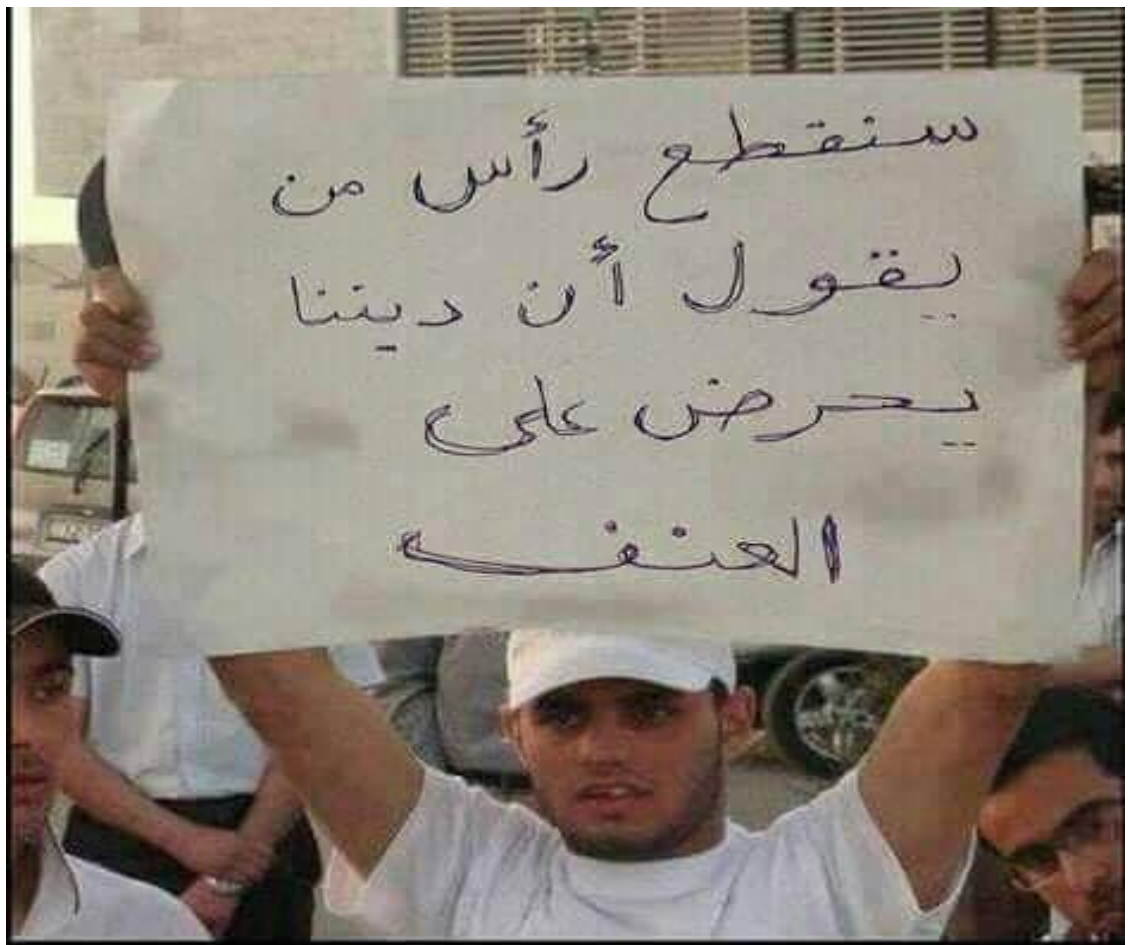 سنقطع رأس من
يقول أن ديننا
يحرض على
العنف